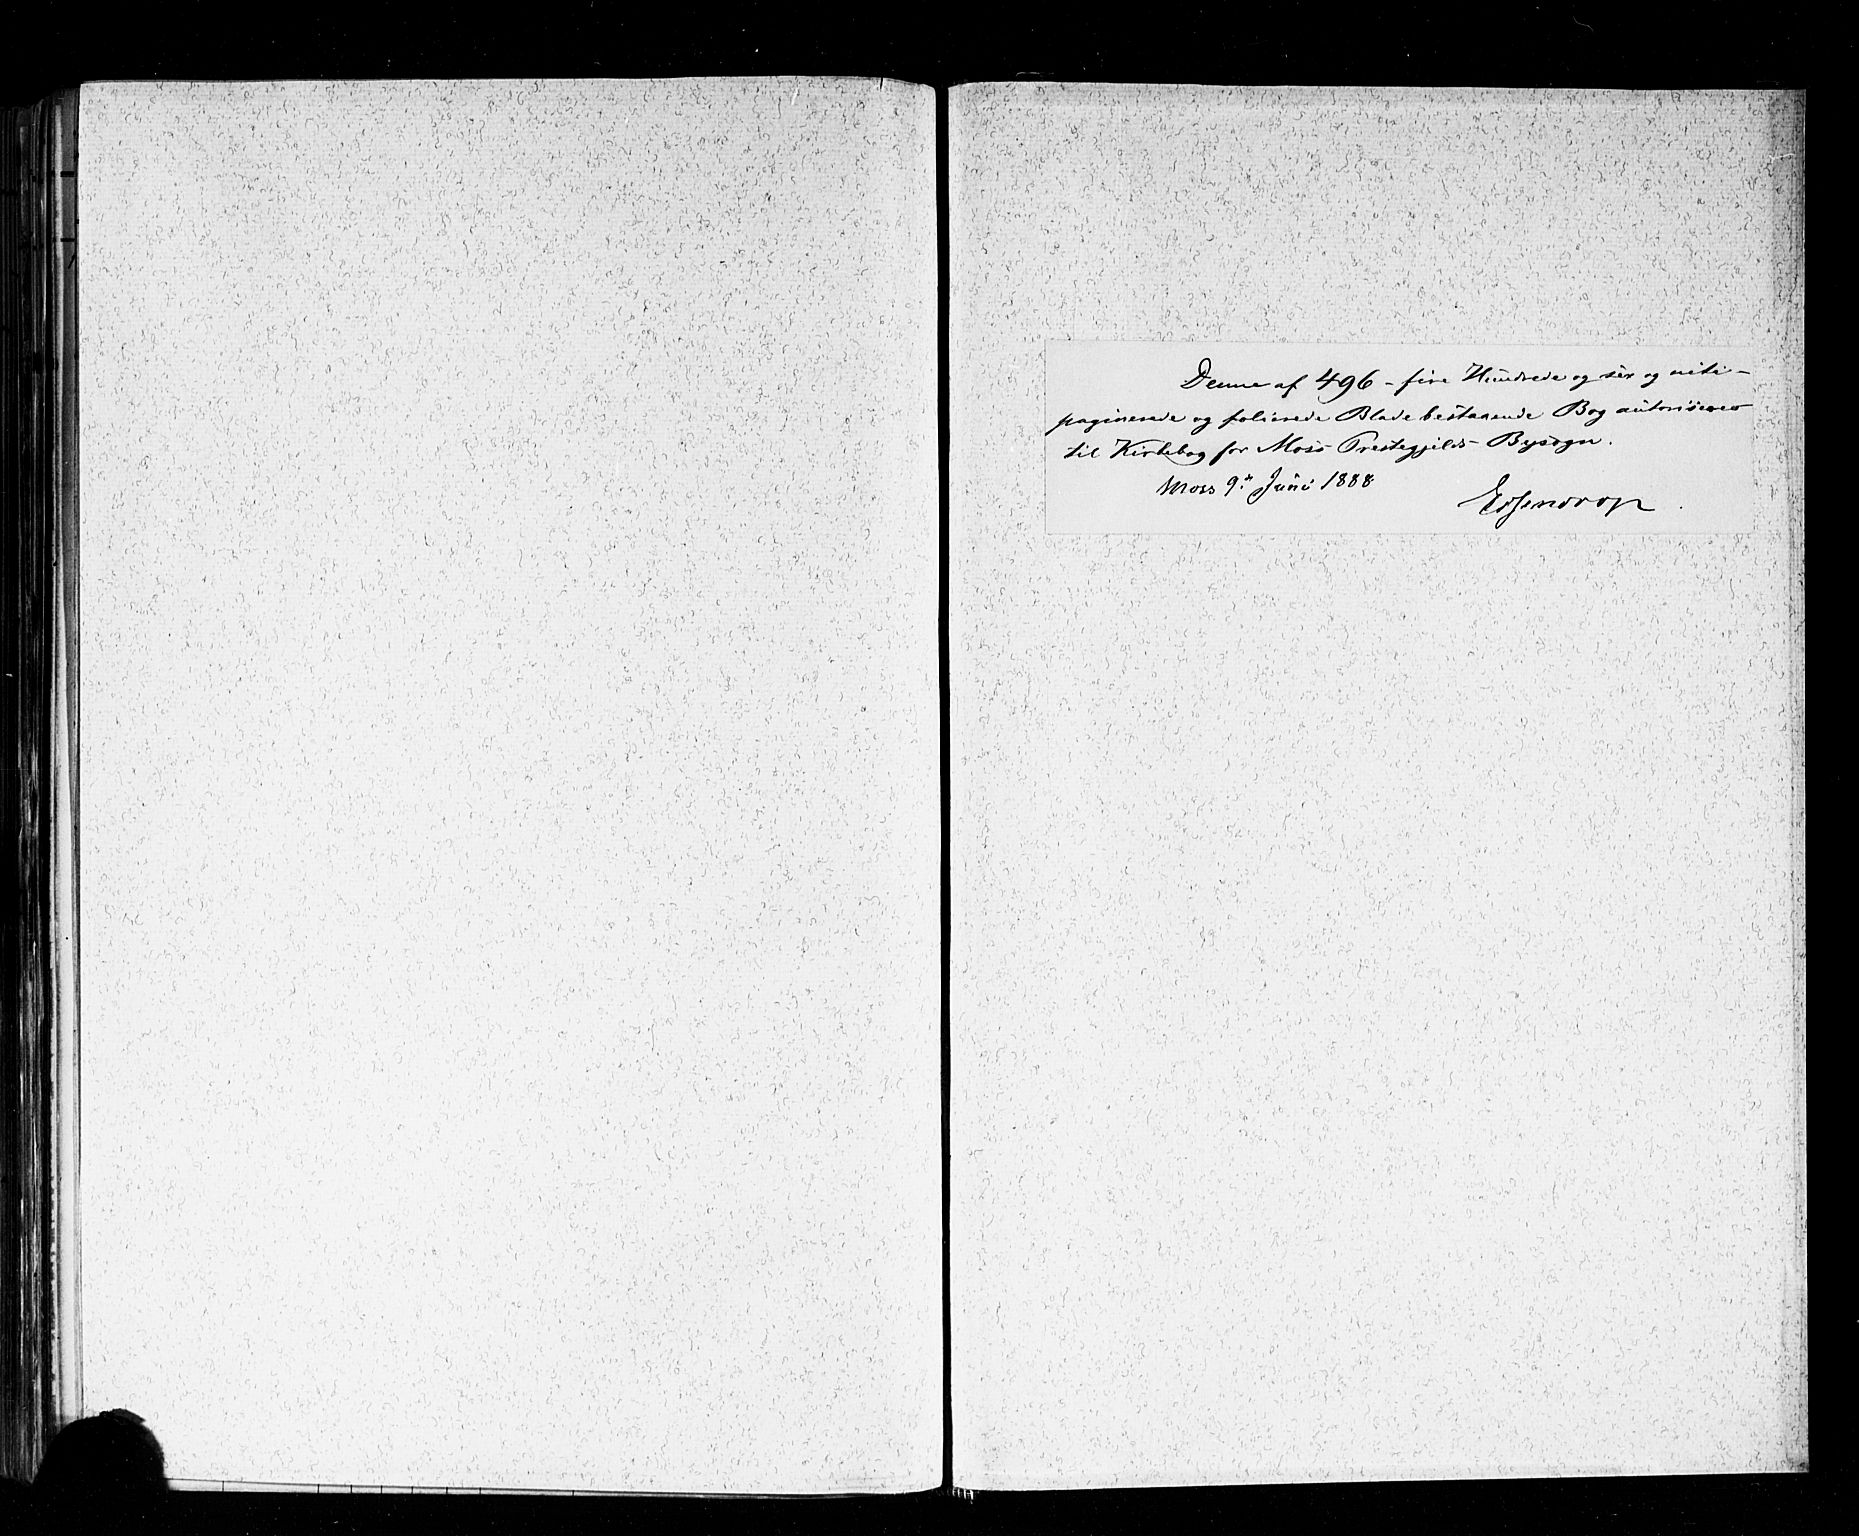 Denne af 496 – fire Hundrede og sex og niti –
paginerede og folierede Blade bestaaende Bog autoriseres
til Kirkebog for Moss Prestegjelds Bysogn.
Moss 9de Juni 1888
Essendrop